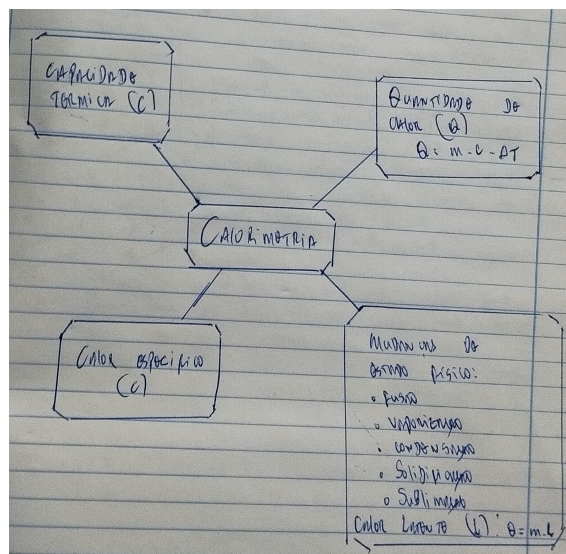 CAPACIDADE
TERMICA (C)
QUANTIDADE DE
CALOR (Q)
Q = m . c . ΔT
CALORIMETRIA
CALOR ESPECIFICO
(C)
MUDANCAS DE
ESTADO FISICO:
• FUSAO
• VAPORIZAÇAO
• CONDENSAÇAO
• SOLIDIFICAÇAO
• SUBLIMAÇAO
CALOR LATENTE (L): Q = m.L